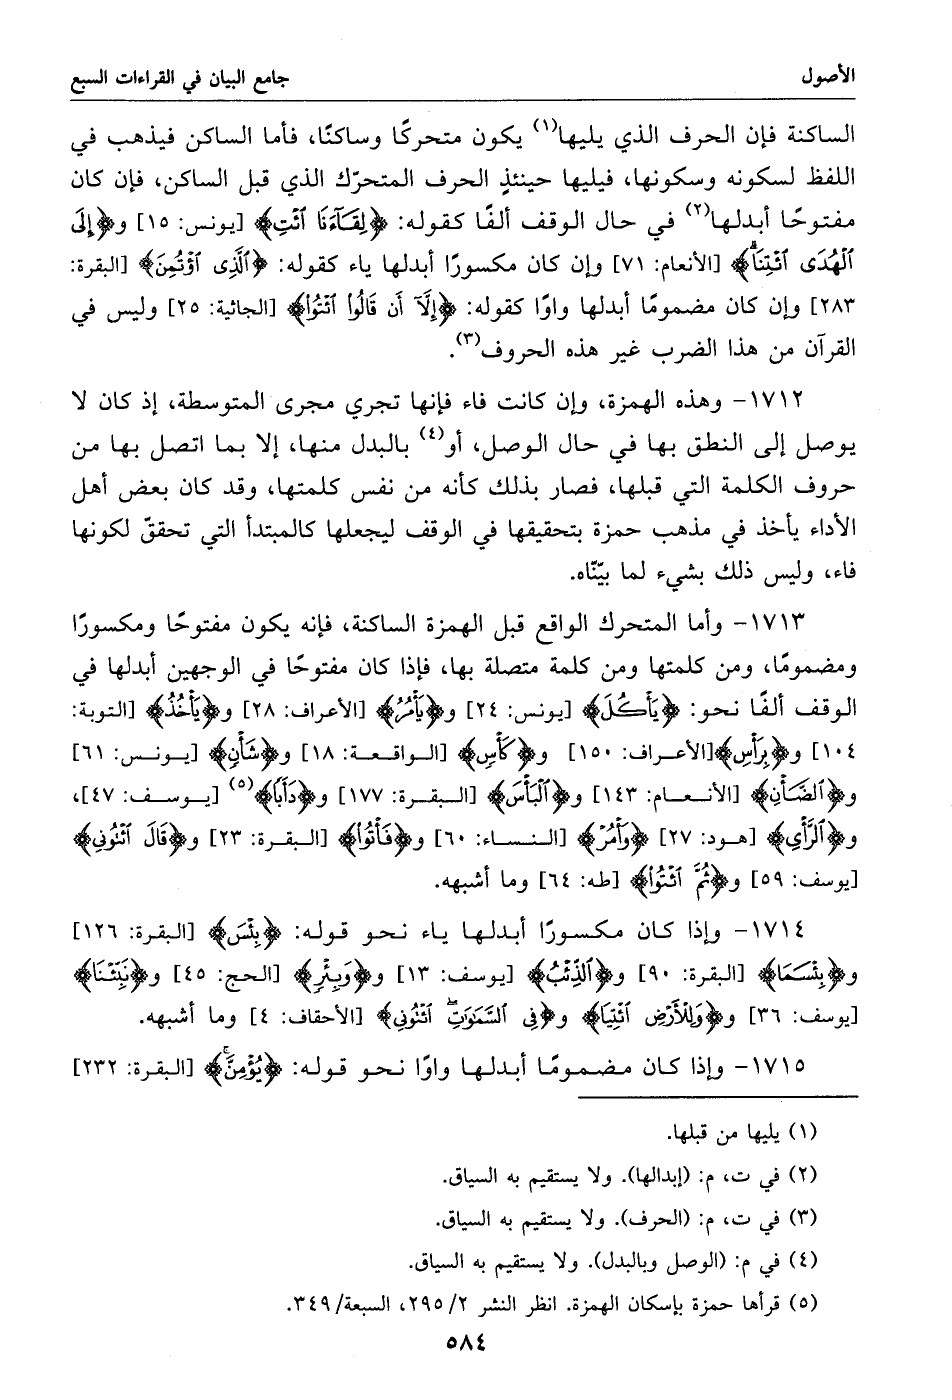 الأصول
جامع البيان في القراءات السبع
الساكنة فإن الحرف الذي يليها(١) يكون متحركًا وساكنًا، فأما الساكن فيذهب في
اللفظ لسكونه وسكونها، فيليها حينئذٍ الحرف المتحرّك الذي قبل الساكن، فإن كان
مفتوحًا أبدلها(٢) في حال الوقف ألفًا كقوله: ﴿لِقَآءَنَا ٱئۡتِ﴾ [يونس: ١٥] و﴿إِلَى
ٱلۡهُدَى ٱئۡتِنَاۗ﴾ [الأنعام: ٧١] وإن كان مكسورًا أبدلها ياء كقوله: ﴿ٱلَّذِى ٱؤۡتُمِنَ﴾ [البقرة:
٢٨٣] وإن كان مضمومًا أبدلها واوًا كقوله: ﴿إِلَّآ أَن قَالُواْ ٱئۡتُواْ﴾ [الجاثية: ٢٥] وليس في
القرآن من هذا الضرب غير هذه الحروف(٣).
١٧١٢- وهذه الهمزة، وإن كانت فاء فإنها تجري مجرى المتوسطة، إذ كان لا
يوصل إلى النطق بها في حال الوصل، أو(٤) بالبدل منها، إلا بما اتصل بها من
حروف الكلمة التي قبلها، فصار بذلك كأنه من نفس كلمتها، وقد كان بعض أهل
الأداء يأخذ في مذهب حمزة بتحقيقها في الوقف ليجعلها كالمبتدأ التي تحققّ لكونها
فاء، وليس ذلك بشيء لما بيّنّاه.
١٧١٣- وأما المتحرك الواقع قبل الهمزة الساكنة، فإنه يكون مفتوحًا ومكسورًا
ومضمومًا، ومن كلمتها ومن كلمة متصلة بها، فإذا كان مفتوحًا في الوجهين أبدلها في
الوقف ألفًا نحو: ﴿يَأۡكُلَ﴾ [يونس: ٢٤] و﴿يَأۡمُرُ﴾ [الأعراف: ٢٨] و﴿يَأۡخُذُ﴾ [التوبة:
١٠٤] و﴿بِرَأۡسِ﴾[الأعراف: ١٥٠] و﴿كَأۡسٍ﴾ [الواقعة: ١٨] و﴿شَأۡنٍ﴾ [يونس: ٦١]
و﴿ٱلضَّأۡنِ﴾ [الأنعام: ١٤٣] و﴿ٱلۡبَأۡسَ﴾ [البقرة: ١٧٧] و﴿دَأَبًا﴾(٥) [يوسف: ٤٧]،
و﴿ٱلرَّأۡيِ﴾ [هود: ٢٧] ﴿وَأۡمُرۡ﴾ [النساء: ٦٠] و﴿فَأۡتُواْ﴾ [البقرة: ٢٣] و﴿قَالَ ٱئۡتُونِى﴾
[يوسف: ٥٩] و﴿ثُمَّ ٱئۡتُواْ﴾ [طه: ٦٤] وما أشبهه.
١٧١٤- وإذا كان مكسورًا أبدلها ياء نحو قوله: ﴿بِئۡسَ﴾ [البقرة: ١٢٦]
و﴿بِئۡسَمَا﴾ [البقرة: ٩٠] و﴿ٱلذِّئۡبُ﴾ [يوسف: ١٣] و﴿وَبِئۡرٍ﴾ [الحج: ٤٥] و﴿نَبِّئۡنَا﴾
[يوسف: ٣٦] و﴿وَلِلۡأَرۡضِ ٱئۡتِيَا﴾ و﴿فِى ٱلسَّمَٰوَٰتِۖ ٱئۡتُونِى﴾ [الأحقاف: ٤] وما أشبهه.
١٧١٥- وإذا كان مضمومًا أبدلها واوًا نحو قوله: ﴿يُؤۡمِنَّۚ﴾ [البقرة: ٢٣٢]
(١) يليها من قبلها.
(٢) في ت، م: (إبدالها). ولا يستقيم به السياق.
(٣) في ت، م: (الحرف). ولا يستقيم به السياق.
(٤) في م: (الوصل وبالبدل). ولا يستقيم به السياق.
(٥) قرأها حمزة بإسكان الهمزة. انظر النشر ٢/ ٢٩٥، السبعة/ ٣٤٩.
٥٨٤